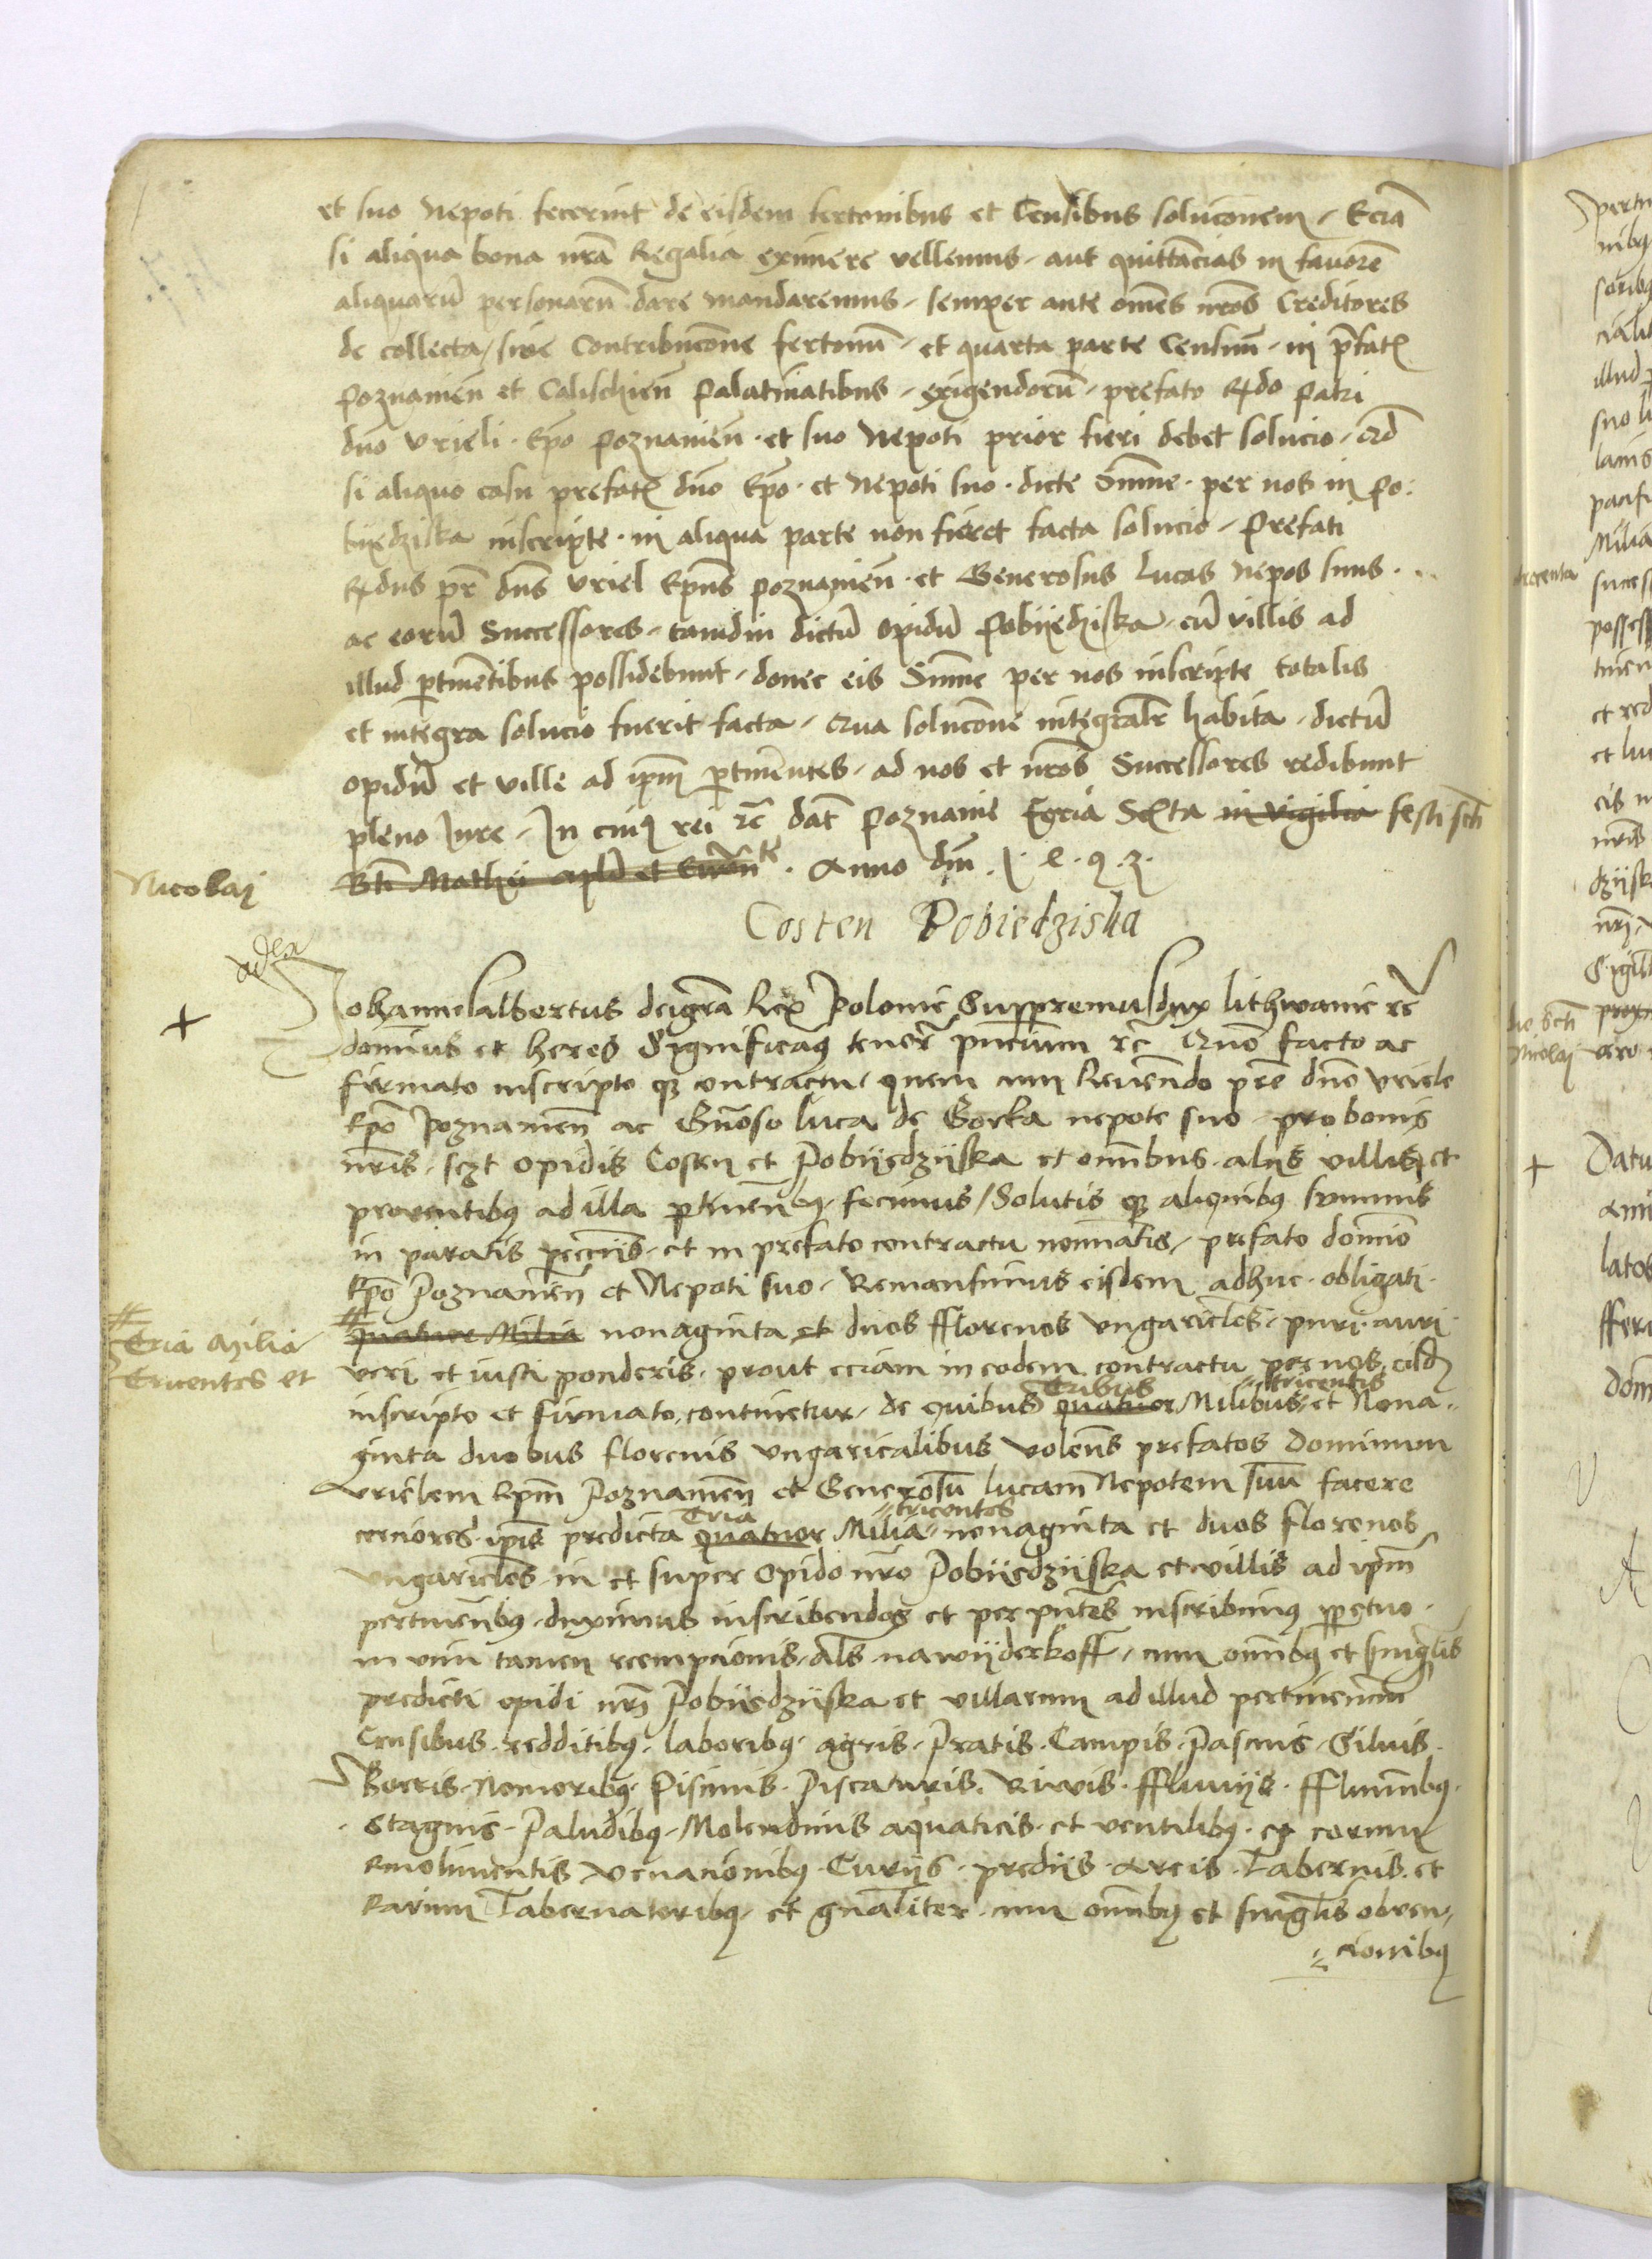 et suo Nepoti fecerint de eisdem fertonibus et Censibus soluconem, Ecia
si aliqua bona nra Regalia eximere vellemus, aut quittacias in favore
aliquaru personaru dare mandaremus, semper ante omes nros Creditores
de collecta, sive Contribucone fertonu, et quarta parte Censuu, in pfat
Poznanien et Calischien Palatinatibus, exigendoru, prefato Rdo Patri
dno Vrieli Epo Poznanien et suo Nepoti prior fieri debet solucio, Qd
si aliquo casu prefat dno Epo et Nepoti suo dicte Sume per nos in Po:
byedziska inscripte in aliqua parte non fieret facta solucio, Prefati
Rdus pr dns Vriel Epus poznanien et Generosus Lucas Nepos suus
ac eoru Successores, tamdiu dictu Opidu Pobyedziska, cu villis ad
illud ptinetibus possidebunt, donec eis Sume per nos inscripte totalis
et integra solucio fuerit facta, Qua solucone integralr habita, dictu
Opidu et ville ad ipm ptinentes, ad nos et nros Successores redibunt
pleno Iure, In cuius rei rc dat Poznanie feria Sexta in vigilia festi scti
Nicolai
Bti Mathei apli et Ewan te. Anno dni
Costen Pobiedziska
Iohannesalbertus deigra Rex Polonie Suppremusdux lithwanie rc
+
dominus et heres Significamus tenore pntium rc Quo facto ac
firmato inscripto que contractu, quem cum Reverendo pre dno Vriele
Epo Poznanien ac Gnoso Luca de Gorka nepote suo, pro bonis
nris, sczt opidis Costen et Pobyedzyska et omibus alys villis, et
proventibus ad illa ptinenbus, fecimus, Solutis que aliquibus summis
in paratis pecunys, et in prefato contractu nominatis, prefato domino
Epo Poznanien et Nepoti suo, Remansimus eisdem adhuc obligati
# Tria Milia Tricentos et
# Quatuor Milia nonaginta et duos fflorenos Vngaricales, puri auri
veri et iusti ponderis, prout eciam in eodem contractu per nos eisdem
Tribus tricentis
inscripto et firmato, continetur, de quibus quatuor Milibus, et Nona
ginta duobus florenis Vngaricalibus volens prefatos dominum
Vrielem Epm Poznanien et Generosu lucam Nepotem suu facere
Tria tricentos
certiores ipis predicta quatuor Milia nonaginta et duos florenos
Vngaricales, in et super Opido nro Pobyedzyska et villis ad ipm
pertinenbus duximus inscribendos et per pntes inscribimus ppetuo
in vim tamen reempcionis, als nawyderkoff, cum omibus et singlis
predicti opidi nri Pobyedzyska et villarum ad illud pertinencium
Censibus redditibus laboribus agris Pratis Campis Pascuis Siluis
Borris Nemoribus Piscinis Piscaturis Riuvis ffluvys ffluminibus
Stagnis Paludibus Molendinis aquaticis et ventilibus et eorum
Emolimentis Venacionibus Curys predys Areis Tabernis et
Earum Tabernatoribus et gnaliter cum omibus et singlis obven,
cionibus